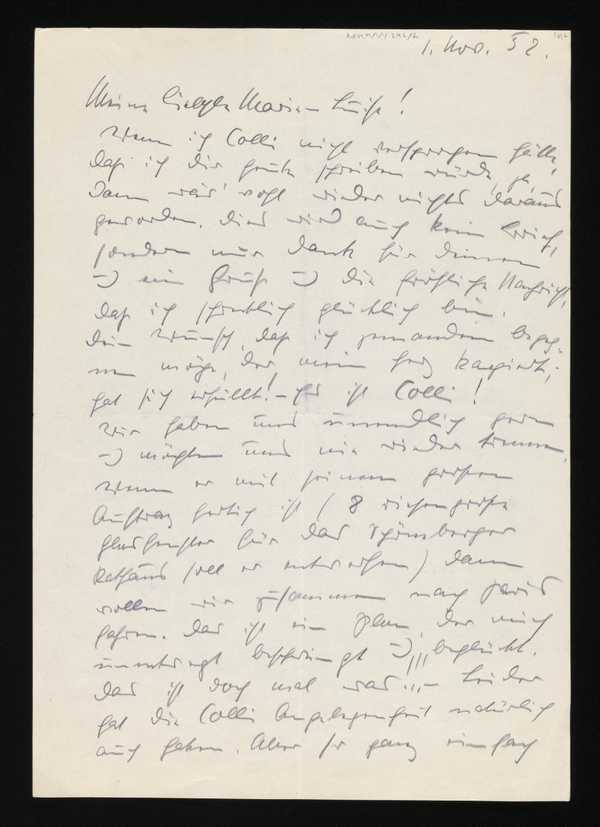 1. Nov. 52.
Meine liebste Marie-Luise!
Wenn ich Colli nicht versprochen hätte,
daß ich Dir heute schreiben würde, ja,
dann wär' wohl wieder nichts daraus
geworden. Dies wird auch kein Brief,
sondern nur Dank für Deinen
ein Gruß die fröhliche Nachricht,
daß ich schrecklich glücklich bin.
Dein Wunsch, daß ich jemandem begeg-
nen möge, der mein Herz kapiert,
hat sich erfüllt! – Es ist Colli!
Wir haben uns unendlich gern
möchten uns nie wieder trennen.
Wenn er mit seinem großen
Auftrag fertig ist (8 riesengroße
Glasfenster für das Schöneberger
Rathaus soll er entwerfen) dann
wollen wir zusammen nach Paris
fahren. Das ist ein Plan, der mich
unentwegt beschwingt beglückt.
Das ist doch mal was!!! – Leider
hat die Colli Angelegenheit natürlich
auch Haken. Aber so ganz einfach